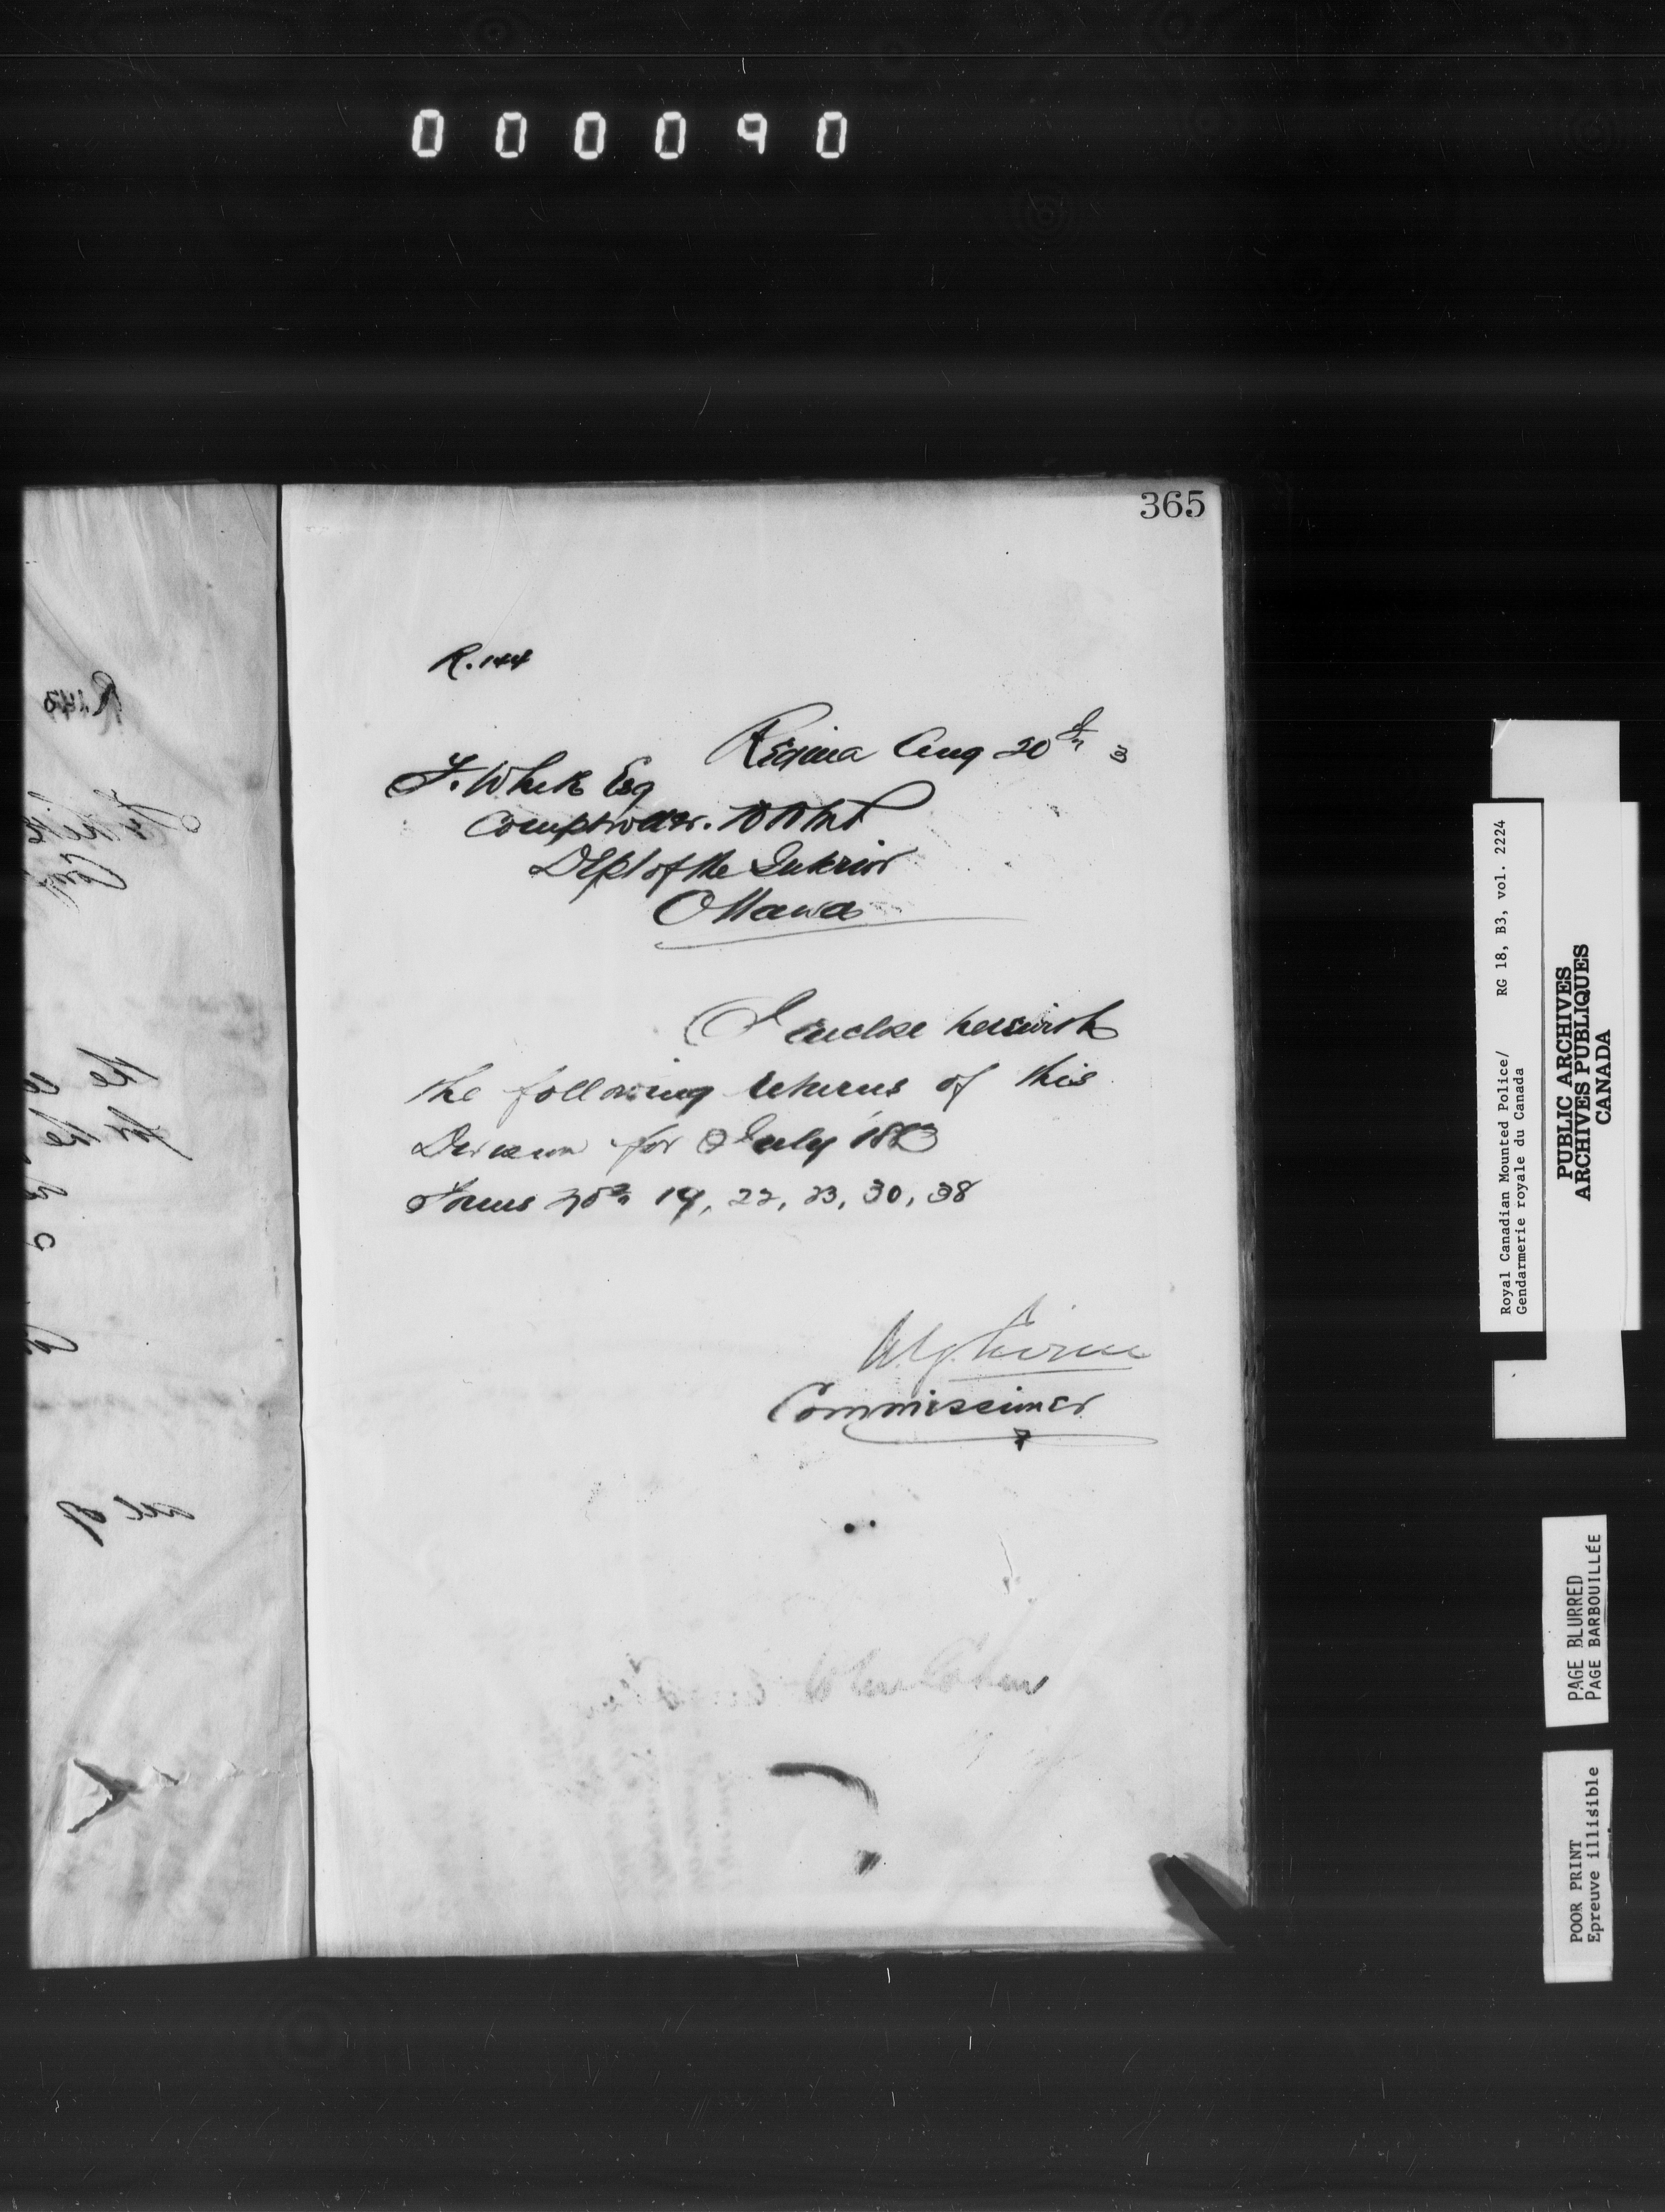 000090
365
R. 144
Regina Aug 20th 3
F. White Esq
Comptroller. NWMP
Dept of the Interior
Ottawa
I enclose herewith
the following returns of this
Division for July 1883
Forms Nos 19, 22, 23, 30, 38
A.G. Irvine
Commissioner
Royal Canadian Mounted Police/ RG 18, B3, vol. 2224
Gendarmerie royale du Canada
PUBLIC ARCHIVES
ARCHIVES PUBLIQUES
CANADA
PAGE BLURRED
PAGE BARBOUILLÉE
POOR PRINT
Epreuve illisible